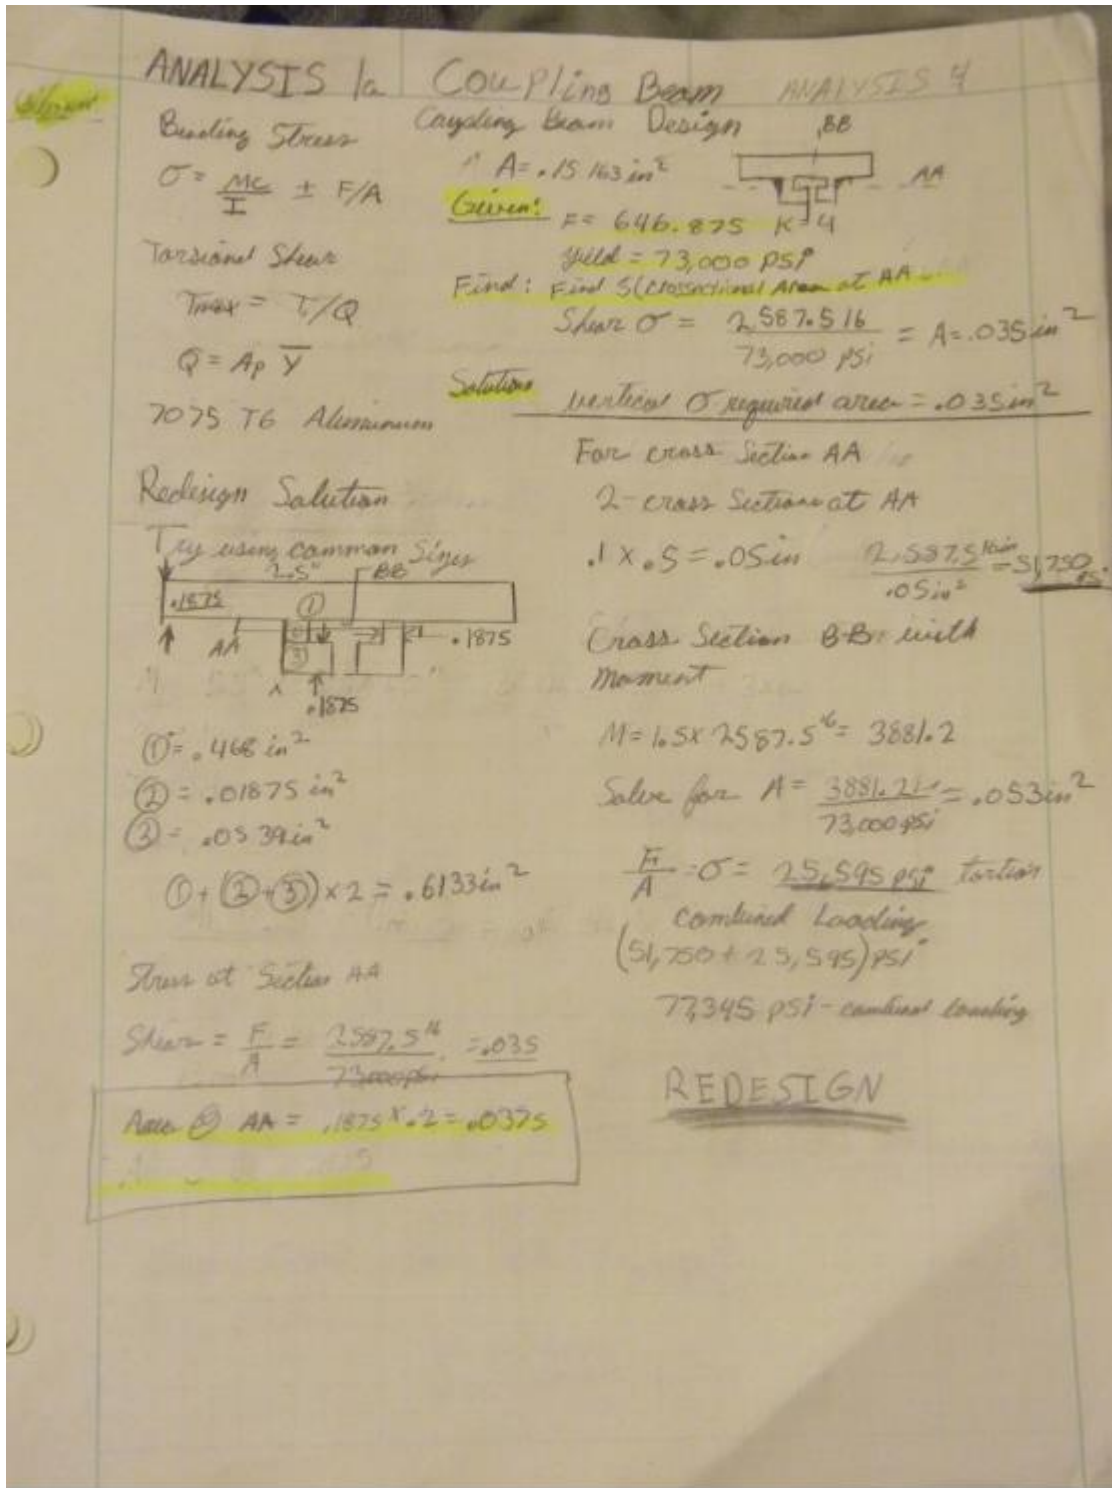 ANALYSIS 1a Coupling Beam ANALYSIS 4
Bending Stress
σ = Mc/I ± F/A
Torsional Shear
Tmax = T/Q
Q = Ap ȳ
7075 T6 Aluminum
Redesign Solution
Try using common Sizes
2.5" BB
.1875 ①
AA ③ .1875
.1875
① = .468 in²
② = .01875 in²
③ = .0539 in²
① + (② + ③) × 2 = .6133 in²
Stress at Section AA
Shear = F/A = 2587.5 lb / 73000 psi = .035
Area @ AA = .1875 × .2 = .0375
Coupling Beam Design BB
A = .15163 in² AA
Given: F = 646.875 K = 4
Yield = 73,000 PSI
Find: Find S(crossectional Area at AA
Shear σ = 2,587.5 lb / 73,000 psi = A = .035 in²
Solution vertical σ required area = .035 in²
For cross Section AA
2-cross Sections at AA
.1 × .5 = .05 in 2,587.5 / .05 in² = 51,750
Cross Section B-B: with
Moment
M = 1.5 × 2587.5 lb = 3881.2
Solve for A = 3881.2 / 73,000 psi = .053 in²
F/A = σ = 25,595 psi tortion
Combined Loading
(51,750 + 25,595) PSI
77,345 PSI - combined loading
REDESIGN